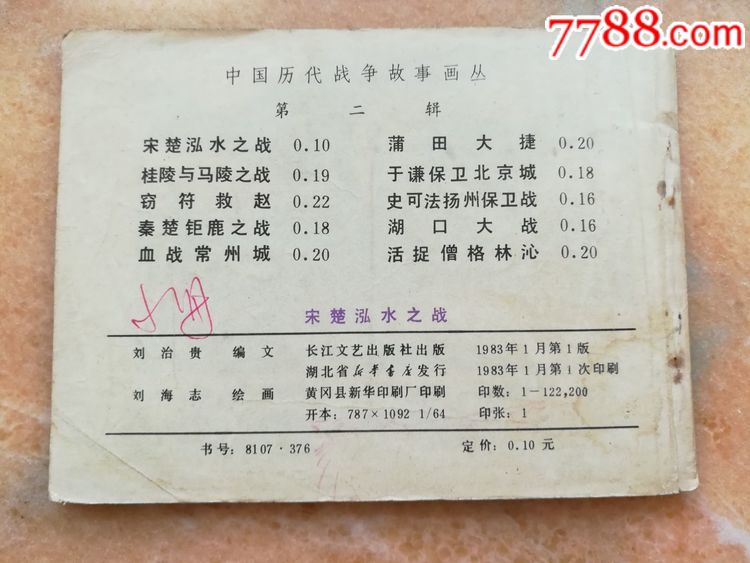 7788.com
中国历代战争故事画丛
第二辑
宋楚泓水之战 0.10 蒲田大捷 0.20
桂陵与马陵之战 0.19 于谦保卫北京城 0.18
窃符救赵 0.22 史可法扬州保卫战 0.16
秦楚钜鹿之战 0.18 湖口大战 0.16
血战常州城 0.20 活捉僧格林沁 0.20
宋楚泓水之战
刘治贵 编文 长江文艺出版社出版 1983年1月第1版
湖北省新华书店发行 1983年1月第1次印刷
刘海志 绘画 黄冈县新华印刷厂印刷 印数:1—122,200
开本:787×1092 1/64 印张:1
书号:8107·376 定价:0.10元